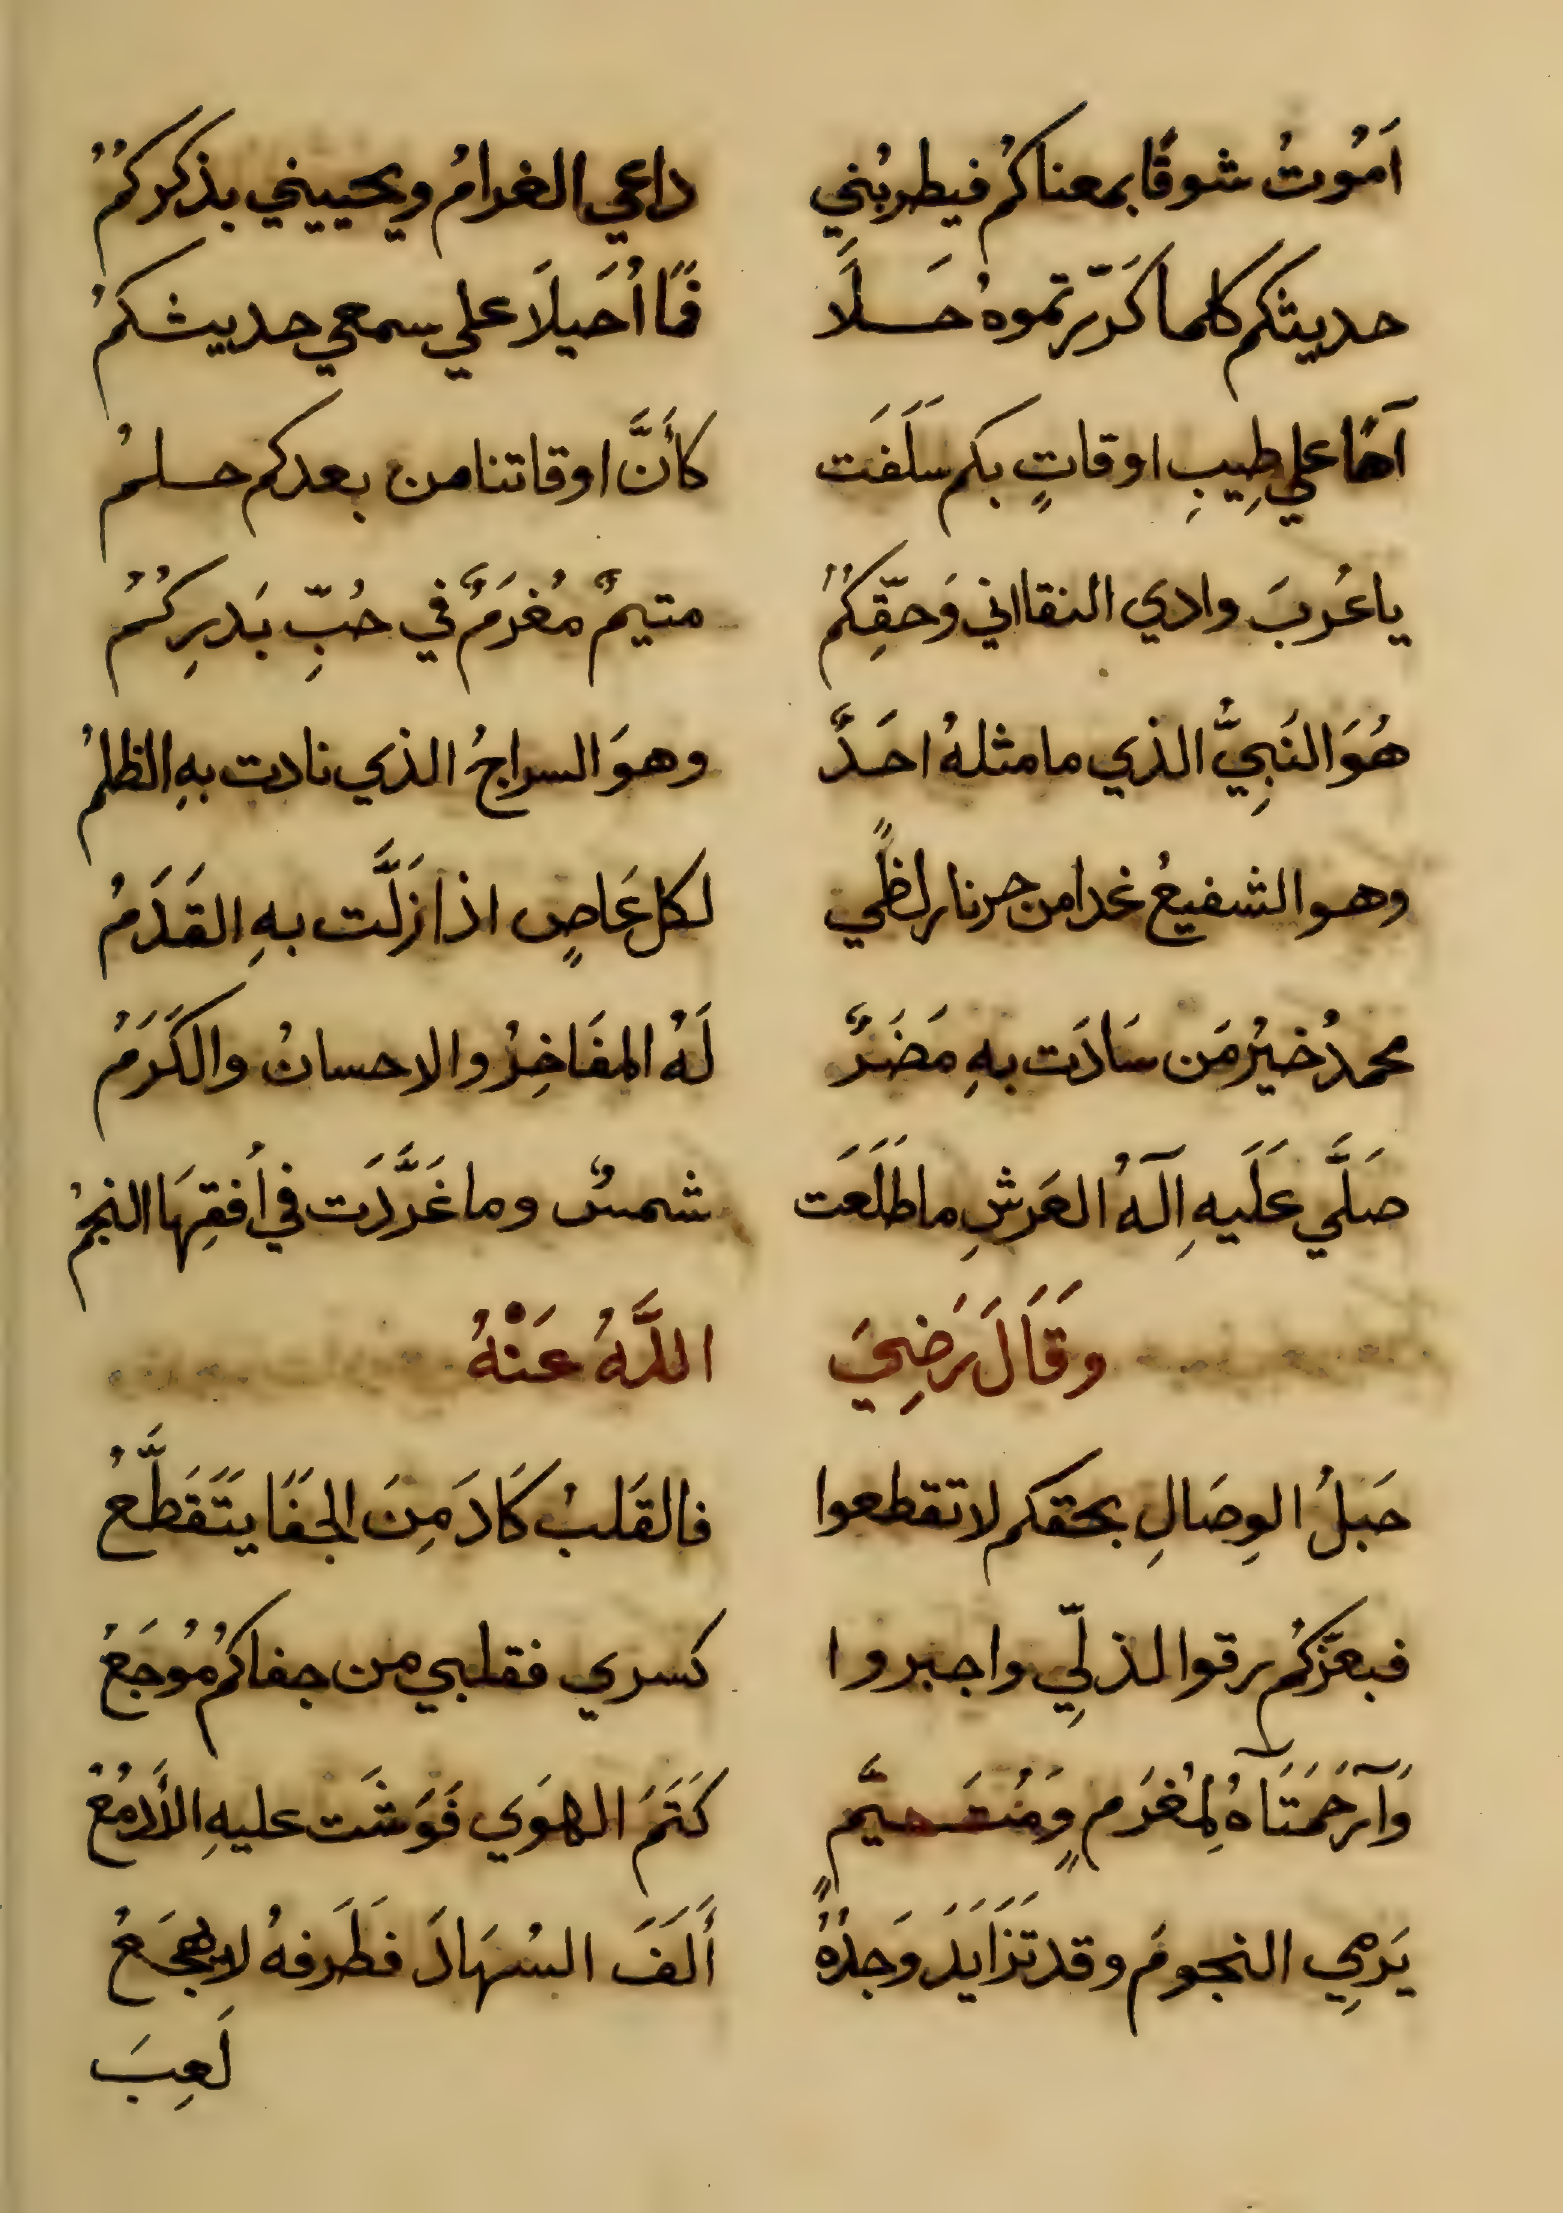 اَمُوتُ شوقًا بمعناكُم فيطربُني داعي الغرامُ ويحييني بذكركُمُ
حديثكم كلما كَرّرتموهُ حَلَا فمَا أُحَيلَا علي سمعي حديثكمُ
آهًا علي طِيبِ اوقاتٍ بكم سَلَفَت كأنَّ اوقاتنا من بعدكم حلمُ
يا عُربَ وادي النقا اني وَحَقِّكُمُ متيمٌ مُغرَمٌ في حُبِّ بَدرِكُمُ
هُوَ النَبِيُّ الذي ما مثلهُ احَدٌ وهوَ السراجُ الذي نادت بهِ الظلمُ
وهو الشفيعُ غدا من حر نار لظًي لكل عَاصٍ اذا زَلَّت بهِ القَدَمُ
محمدُ خيرُ مَن سَادَت بهِ مَضَرٌ لَهُ المفَاخِرُ والاحسانُ والكَرَمُ
صَلَّي عَلَيهِ اِلَهُ العَرشِ ما طَلَعَت شمسٌ وما غَرَّدَت في أُفقِهَا النجمُ
وَقَالَ رَضِيَ اللَّهُ عَنْهُ
حَبلُ الوِصَالِ بحقكم لا تقطعوا فالقَلبُ كَادَ مِنَ الجَفَا يَتَقَطَّعُ
فبعزّكُم رقوا لذلِّي واجبروا كسري فقلبي من جفاكُم مُوجَعُ
وَآرَحمَتَاهُ لِمُغرَمٍ وَمُتَيَّمٍ كَتَمَ الهَوَي فَوَشَت عليهِ الأَدمُعُ
يَرعِي النجومَ وقد تَزَايَدَ وَجدُهُ أَلَفَ السُهَادَ فطَرفهُ لا يهجَعُ
لَعِبَ